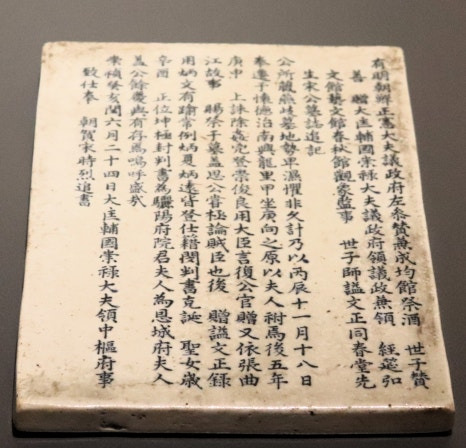 有明朝鮮正憲大夫議政府左參贊兼成均館祭酒 世子贊
善 贈大匡輔國崇祿大夫議政府領議政兼領 經筵弘
文館藝文館春秋館觀象監事 世子師諡文正同春堂先
生宋公墓誌追記
公所 燕岐墓地勢卑濕懼非久計乃以丙辰十一月十八日
奉遷于懷德治南興龍里甲坐庚向之原以夫人祔焉後五年
庚申 上誅除姦兇登崇俊良用大臣言復公官 贈又依張曲
江故事 賜祭于墓盖思公嘗極論賊臣也後 贈諡文正錄
用炳文有踰常例炳夏炳遠皆登仕籍閔判書克誕 聖女歲
辛酉 正位坤極封判書爲驪陽府院君夫人爲恩城府夫人
盖公餘慶與有存焉嗚呼盛哉
崇禎癸亥閏六月二十四日大匡輔國崇祿大夫領中樞府事
致仕奉 朝賀宋時烈追書